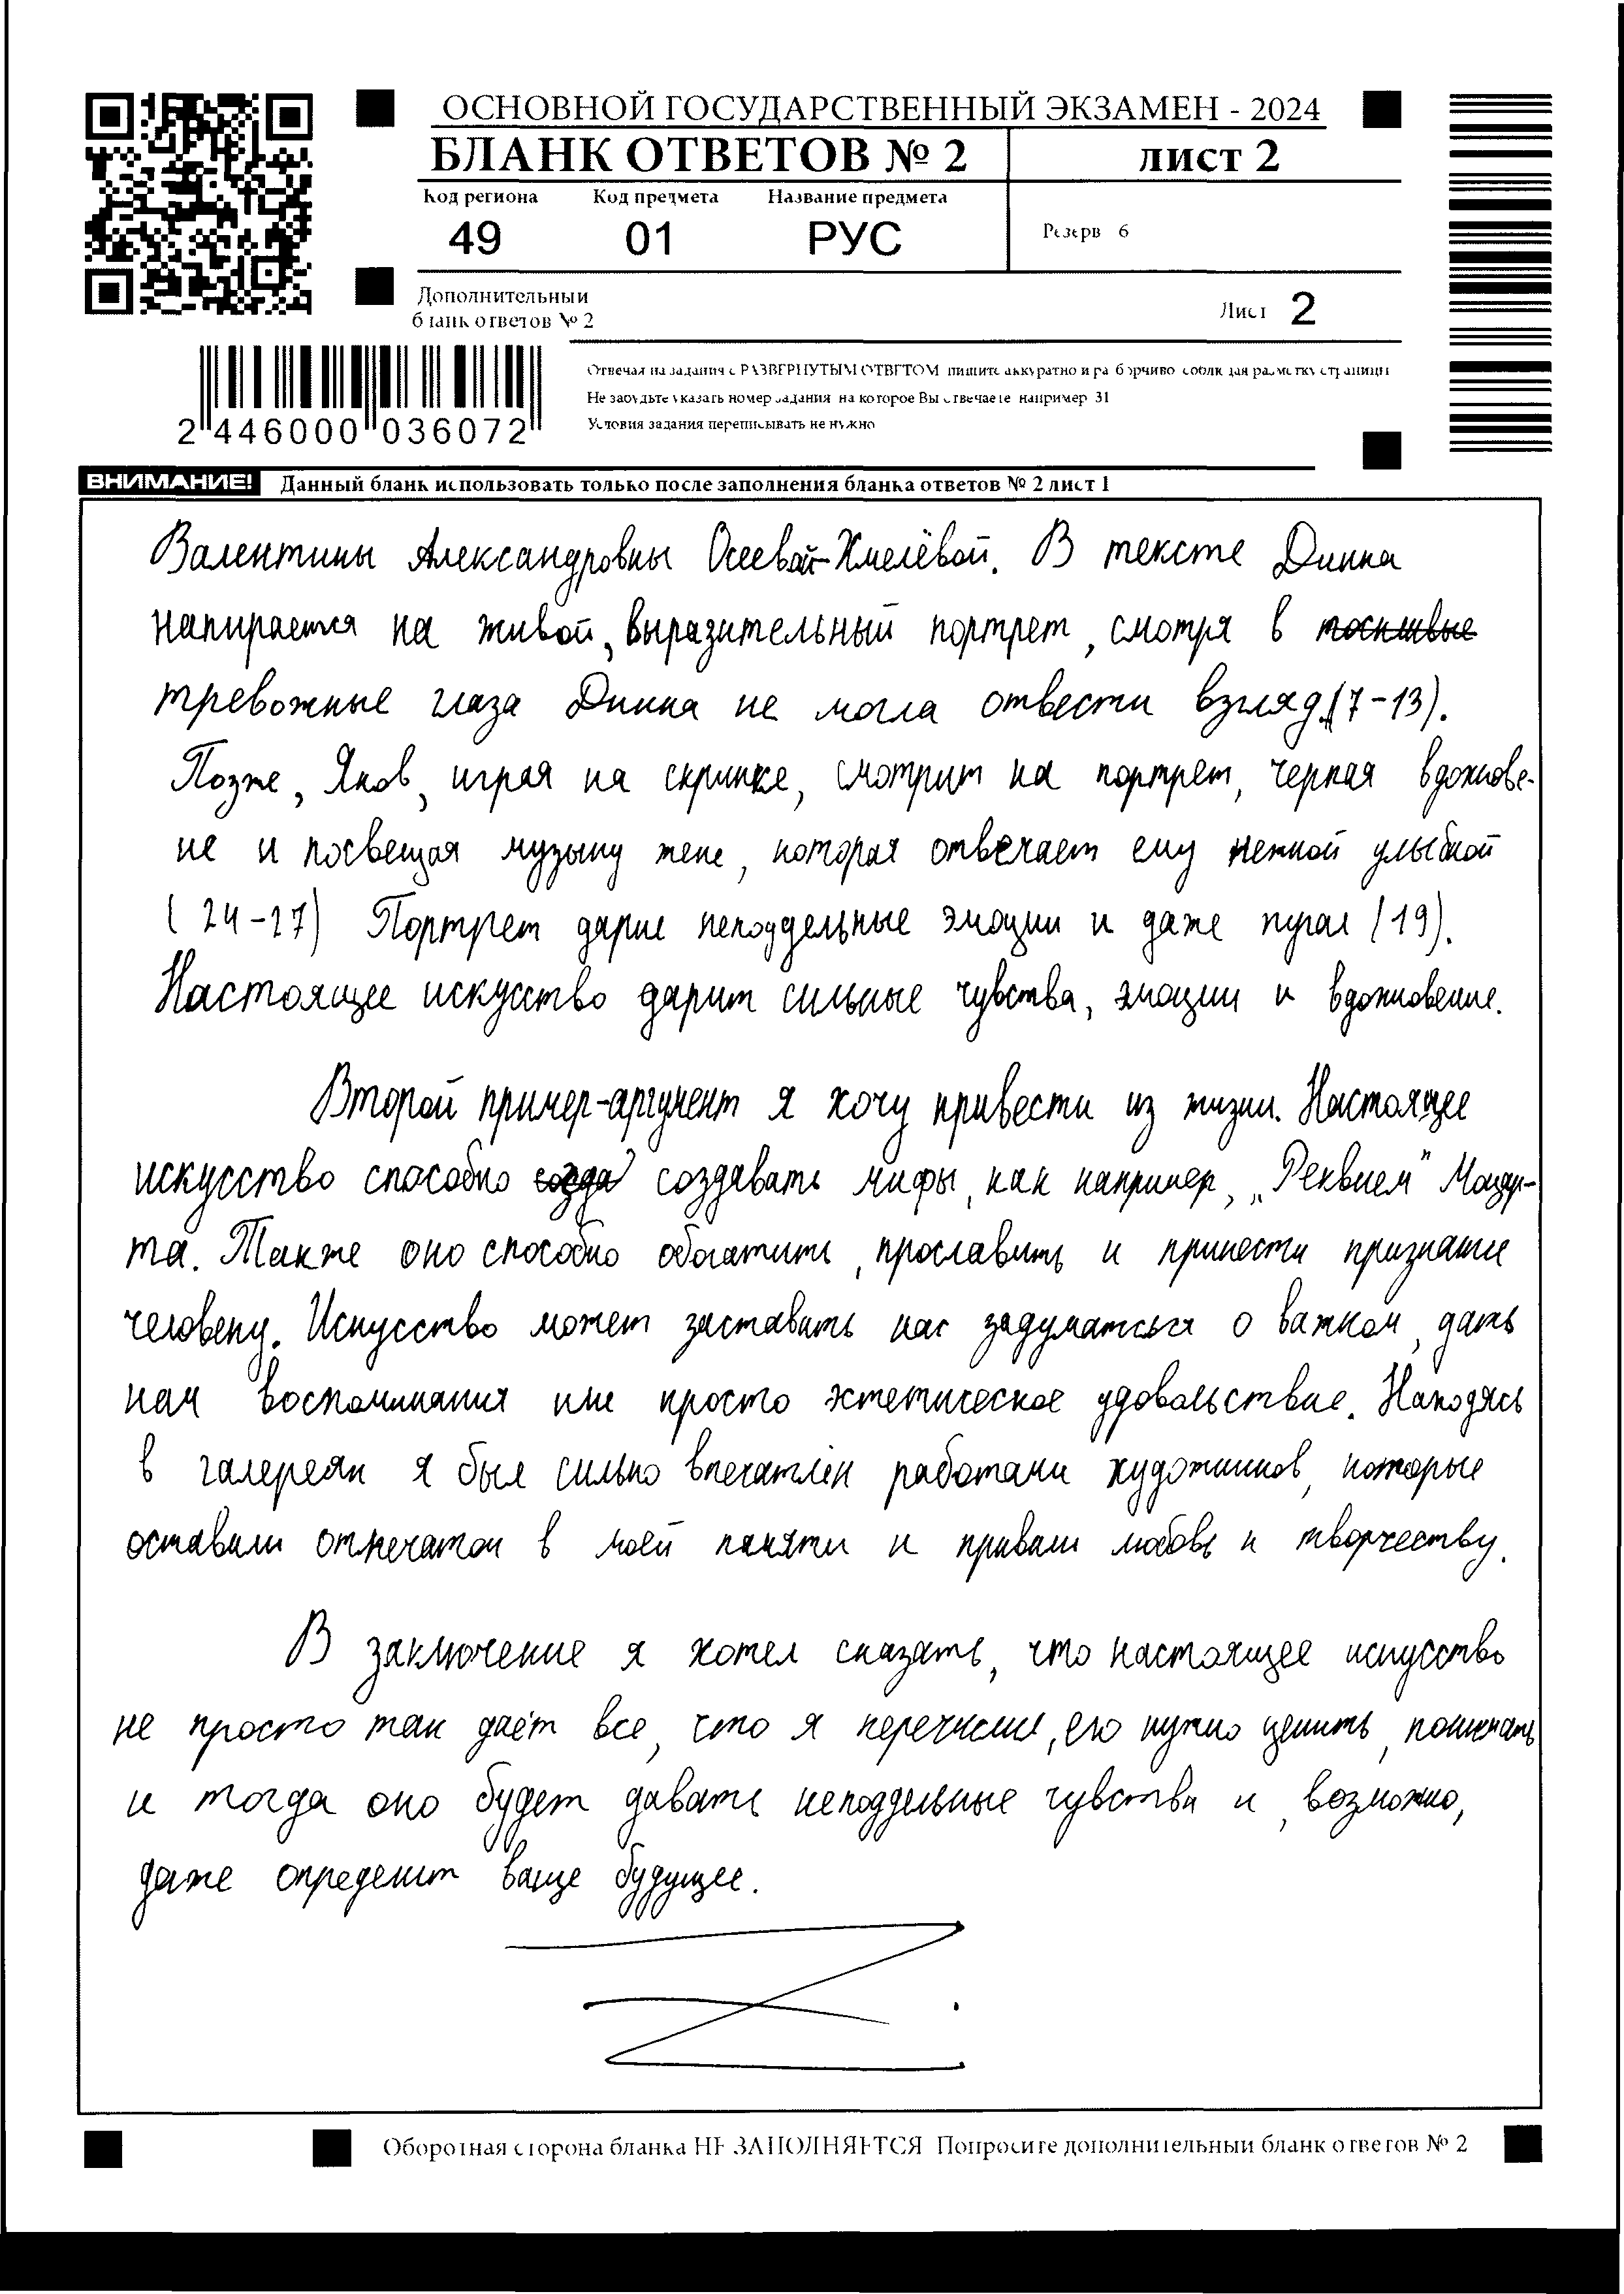 ОСНОВНОЙ ГОСУДАРСТВЕННЫЙ ЭКЗАМЕН - 2024
БЛАНК ОТВЕТОВ № 2
ЛИСТ 2
Код региона Код предмета Название предмета
49 01 РУС
Резерв 6
Дополнительный
бланк ответов № 2
Лист 2
Отвечая на задания с РАЗВЕРНУТЫМ ОТВЕТОМ пишите аккуратно и разборчиво соблюдая разметку страницы
Не забудьте указать номер задания на которое Вы отвечаете например 31
Условия задания переписывать не нужно
2 446000 036072
ВНИМАНИЕ! Данный бланк использовать только после заполнения бланка ответов № 2 лист 1
Валентины Александровны Осеевой-Хмелёвой. В тексте Динка
напирается на живой, выразительный портрет, смотря в тоскливые
тревожные глаза Динка не могла отвести взгляд (7-13).
Позже, Яков, играя на скрипке, смотрит на портрет, черпая вдохнове-
ие и посвещая музыку жене, которая отвечает ему нежной улыбкой
(24-27) Портрет дарил неподдельные эмоции и даже пугал (19).
Настоящее искусство дарит сильные чувства, эмоции и вдохновение.
Второй пример-аргумент я хочу привести из жизни. Настоящее
искусство способно созда создавать мифы, как например, „Реквием" Моцар-
та. Также оно способно обогатить, прославить и принести признание
человеку. Искусство может заставить нас задуматься о важном, дать
нам воспоминания или просто эстетическое удовольствие. Находясь
в галереях я был сильно впечатлён работами художников, которые
оставили отпечаток в моей памяти и привили любовь к творчеству.
В заключение я хотел сказать, что настоящее искусство
не просто так даёт все, что я перечислил, его нужно ценить, понимать
и тогда оно будет давать неподдельные чувства и, возможно,
даже определит ваше будущее.
Оборотная сторона бланка НЕ ЗАПОЛНЯЕТСЯ Попросите дополнительный бланк ответов № 2